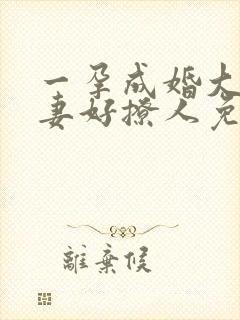 一孕成婚大
妻好撩人免
離棄候